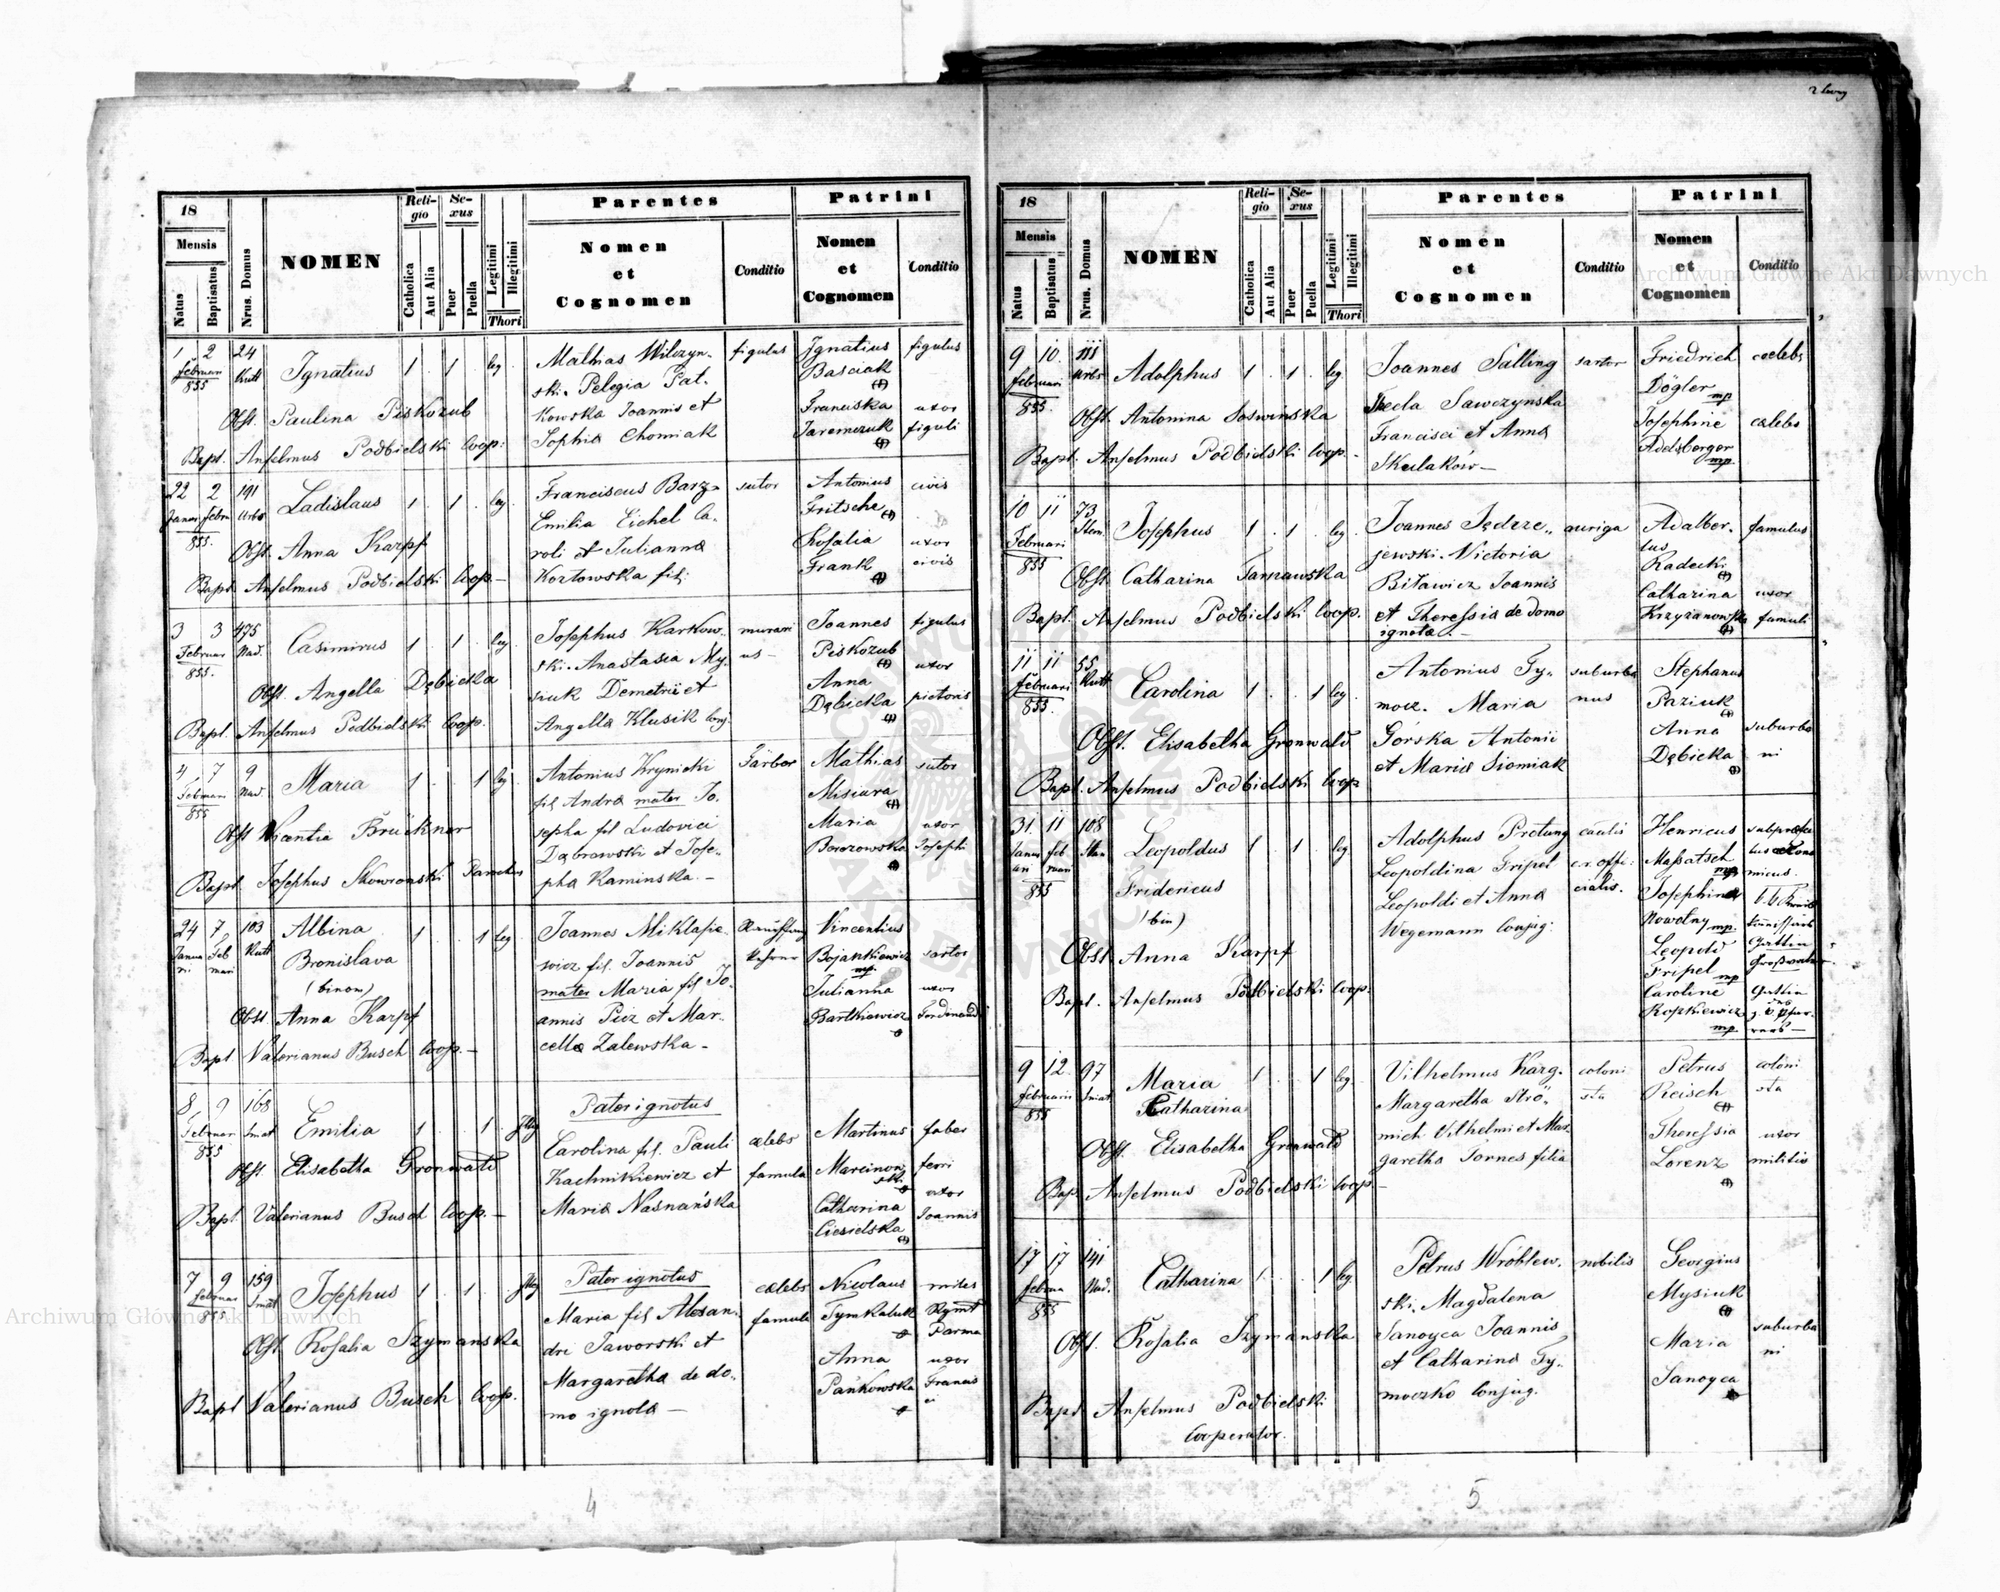 2 lewy
18
Mensis
Natus
Baptisatus
Nrus. Domus
NOMEN
Reli-
gio
Catholica
Aut Alia
Se-
xus
Puer
Puella
Legitimi
Illegitimi
Thori
Parentes
Nomen
et
Cognomen
Conditio
Patrini
Nomen
et
Cognomen
Conditio
1 2 24 Ignatius 1 . 1 . leg.
Februari Kutt
855
Obst. Paulina Piskozub
Bapt. Anselmus Podbielski Coop:
Mathias Wilczyn-
ski. Pelegia Pat-
kowska Joannis et
Sophia Chomiak
figulus
Ignatius
Basciak
Franciska
Jaremczuk
figulus
uxor
figuli
22 2 191 Ladislaus 1 . 1 . leg.
Januar Febru Urbs
855.
Obst. Anna Karpf
Bapt. Anselmus Podbielski Coop.-
Franciscus Barz
Emilia Eichel Ca-
roli et Julianna
Kozłowska fil:
sutor
Antonius
Fritsche
Rosalia
Frank
civis
uxor
civis
3 3 475 Casimirus 1 . 1 . leg.
Februar Nad.
855.
Obst. Angella Dębicka
Bapt. Anselmus Podbielski Coop.
Josephus Karkow-
ski. Anastasia My-
siuk Demetrii et
Angella Klusik Conj.
murari
us -
Joannes
Piskozub
Anna
Dębicka
figulus
uxor
pictoris
4 7 9 Maria 1 . . 1 leg.
Februari Nad.
855
Obst Vicentia Brückner
Bapt Josephus Skowronski Parochus
Antonius Krynicki
fil Andra mater Jo-
sepha fil Ludovici
Dąbrowski et Jose-
pha Kaminska. -
Färber
Mathias
Misiura
Maria
Borozowska
sutor
uxor
Josephi
24 7 103 Albina 1 . . 1 leg.
Janua Feb Kutt
ri mari
Bronislava
(binom)
Obst. Anna Karpf
Bapt Valerianus Busch Coop. -
Joannes Miklasie-
wicz fil. Joannis
mater Maria fil Jo-
annis Picz et Mar-
cella Zalewska -
Vincentius
Bojankiewicz
mp.
Julianna
Bartkiewicz
sartor
uxor
Ferdinandi
8 9 168 Emilia 1 . . 1 . Illeg
Februar Smat
855
Obst. Elisabetha Gronwald
Bapt Valerianus Busch Coop. -
Pater ignotus
Carolina fil. Pauli
Kachnikiewicz et
Maria Nasnańska
cælebs
famula
Martinus
Marcinow
ski
Catharina
Ciesielska
faber
ferri
uxor
Joannis
7 9 159 Josephus 1 . 1 . Illeg
Februar Smat
855
Obst Rosalia Szymanska
Bapt Valerianus Busch Coop.
Pater ignotus
Maria fil Alexan-
dri Jaworski et
Margaretha de do-
mo ignota -
cælebs
famula
Nicolaus
Tymkaluk
Anna
Pańkowska
miles
Rgmt
Parma
uxor
Francis
ci
4
18
Mensis
Natus
Baptisatus
Nrus. Domus
NOMEN
Reli-
gio
Catholica
Aut Alia
Se-
xus
Puer
Puella
Legitimi
Illegitimi
Thori
Parentes
Nomen
et
Cognomen
Conditio
Patrini
Nomen
et
Cognomen
Conditio
9 10. 111 Adolphus 1 . 1 . leg
Februari Urbs
855.
Obst. Antonina Soswinska
Bapt. Anselmus Podbielski Coop. -
Joannes Salling
Thecla Sawczynska
Francisci et Anna
Skulaków -
sartor
Friedrich
Dögler
mp
Josephine
Adelsberger
mp
cœlebs
cælebs
10 11 73 Josephus 1 . 1 . leg.
Februari
855
Obst. Catharina Tarnawska
Bapt. Anselmus Podbielski Coop.
Joannes Jędrze-
jewski. Victoria
Biławicz Joannis
et Theressia de domo
ignota. -
auriga
Adalber-
tus
Radecki
Catharina
Krzyżanowska
famulus
uxor
famuli
11 11 55 Carolina 1 . . 1 leg.
Februari Kutt
855.
Obst. Elisabetha Gronwald
Bapt. Anselmus Podbielski Coop
Antonius Ty-
mocz. Maria
Górska Antonii
et Maria Siomiak
suburba
nus
Stephanus
Paziuk
Anna
Dębicka
suburba
ni
31. 11 108 Leopoldus 1 . 1 . leg
Janu Feb
ari ruari
855
Fridericus
(bin)
Obst. Anna Karpf
Bapt. Anselmus Podbielski Coop.
Adolphus Protung
Leopoldina Fripel
Leopoldi et Anna
Wegemann Conjug:
c.r. offi-
cialis.
Henricus
Massatsch
mp
Josephina
Nowotny mp.
Leopold
Fripel mp
Caroline
Kopkiewicz
mp.
subprefec
tus œcono
micus.
Gattin
Gattin
9 12. 97 Maria 1 . . 1 leg.
Februarii Smat
855
Catharina
Obst. Elisabetha Gronwald
Bap. Anselmus Podbielski Coop -
Vilhelmus Karg-
Margaretha Strö-
mich Vilhelmi et Mar-
garetha Jornes filia
coloni
sta
Petrus
Reisch
Theressia
Lorenz
coloni
sta
uxor
militis
17 17 141 Catharina 1 . . 1 leg
Februa Nad.
855
Obst. Rosalia Szymanska
Bapt. Anselmus Podbielski
Cooperator.
Petrus Wróblew-
ski. Magdalena
Sanoyca Joannis
et Catharina Ty-
moczko Conjug.
nobilis
Georgius
Mysiuk
Maria
Sanoyca
suburba
ni
5
Archiwum Główne Akt Dawnych
Archiwum Główne Akt Dawnych